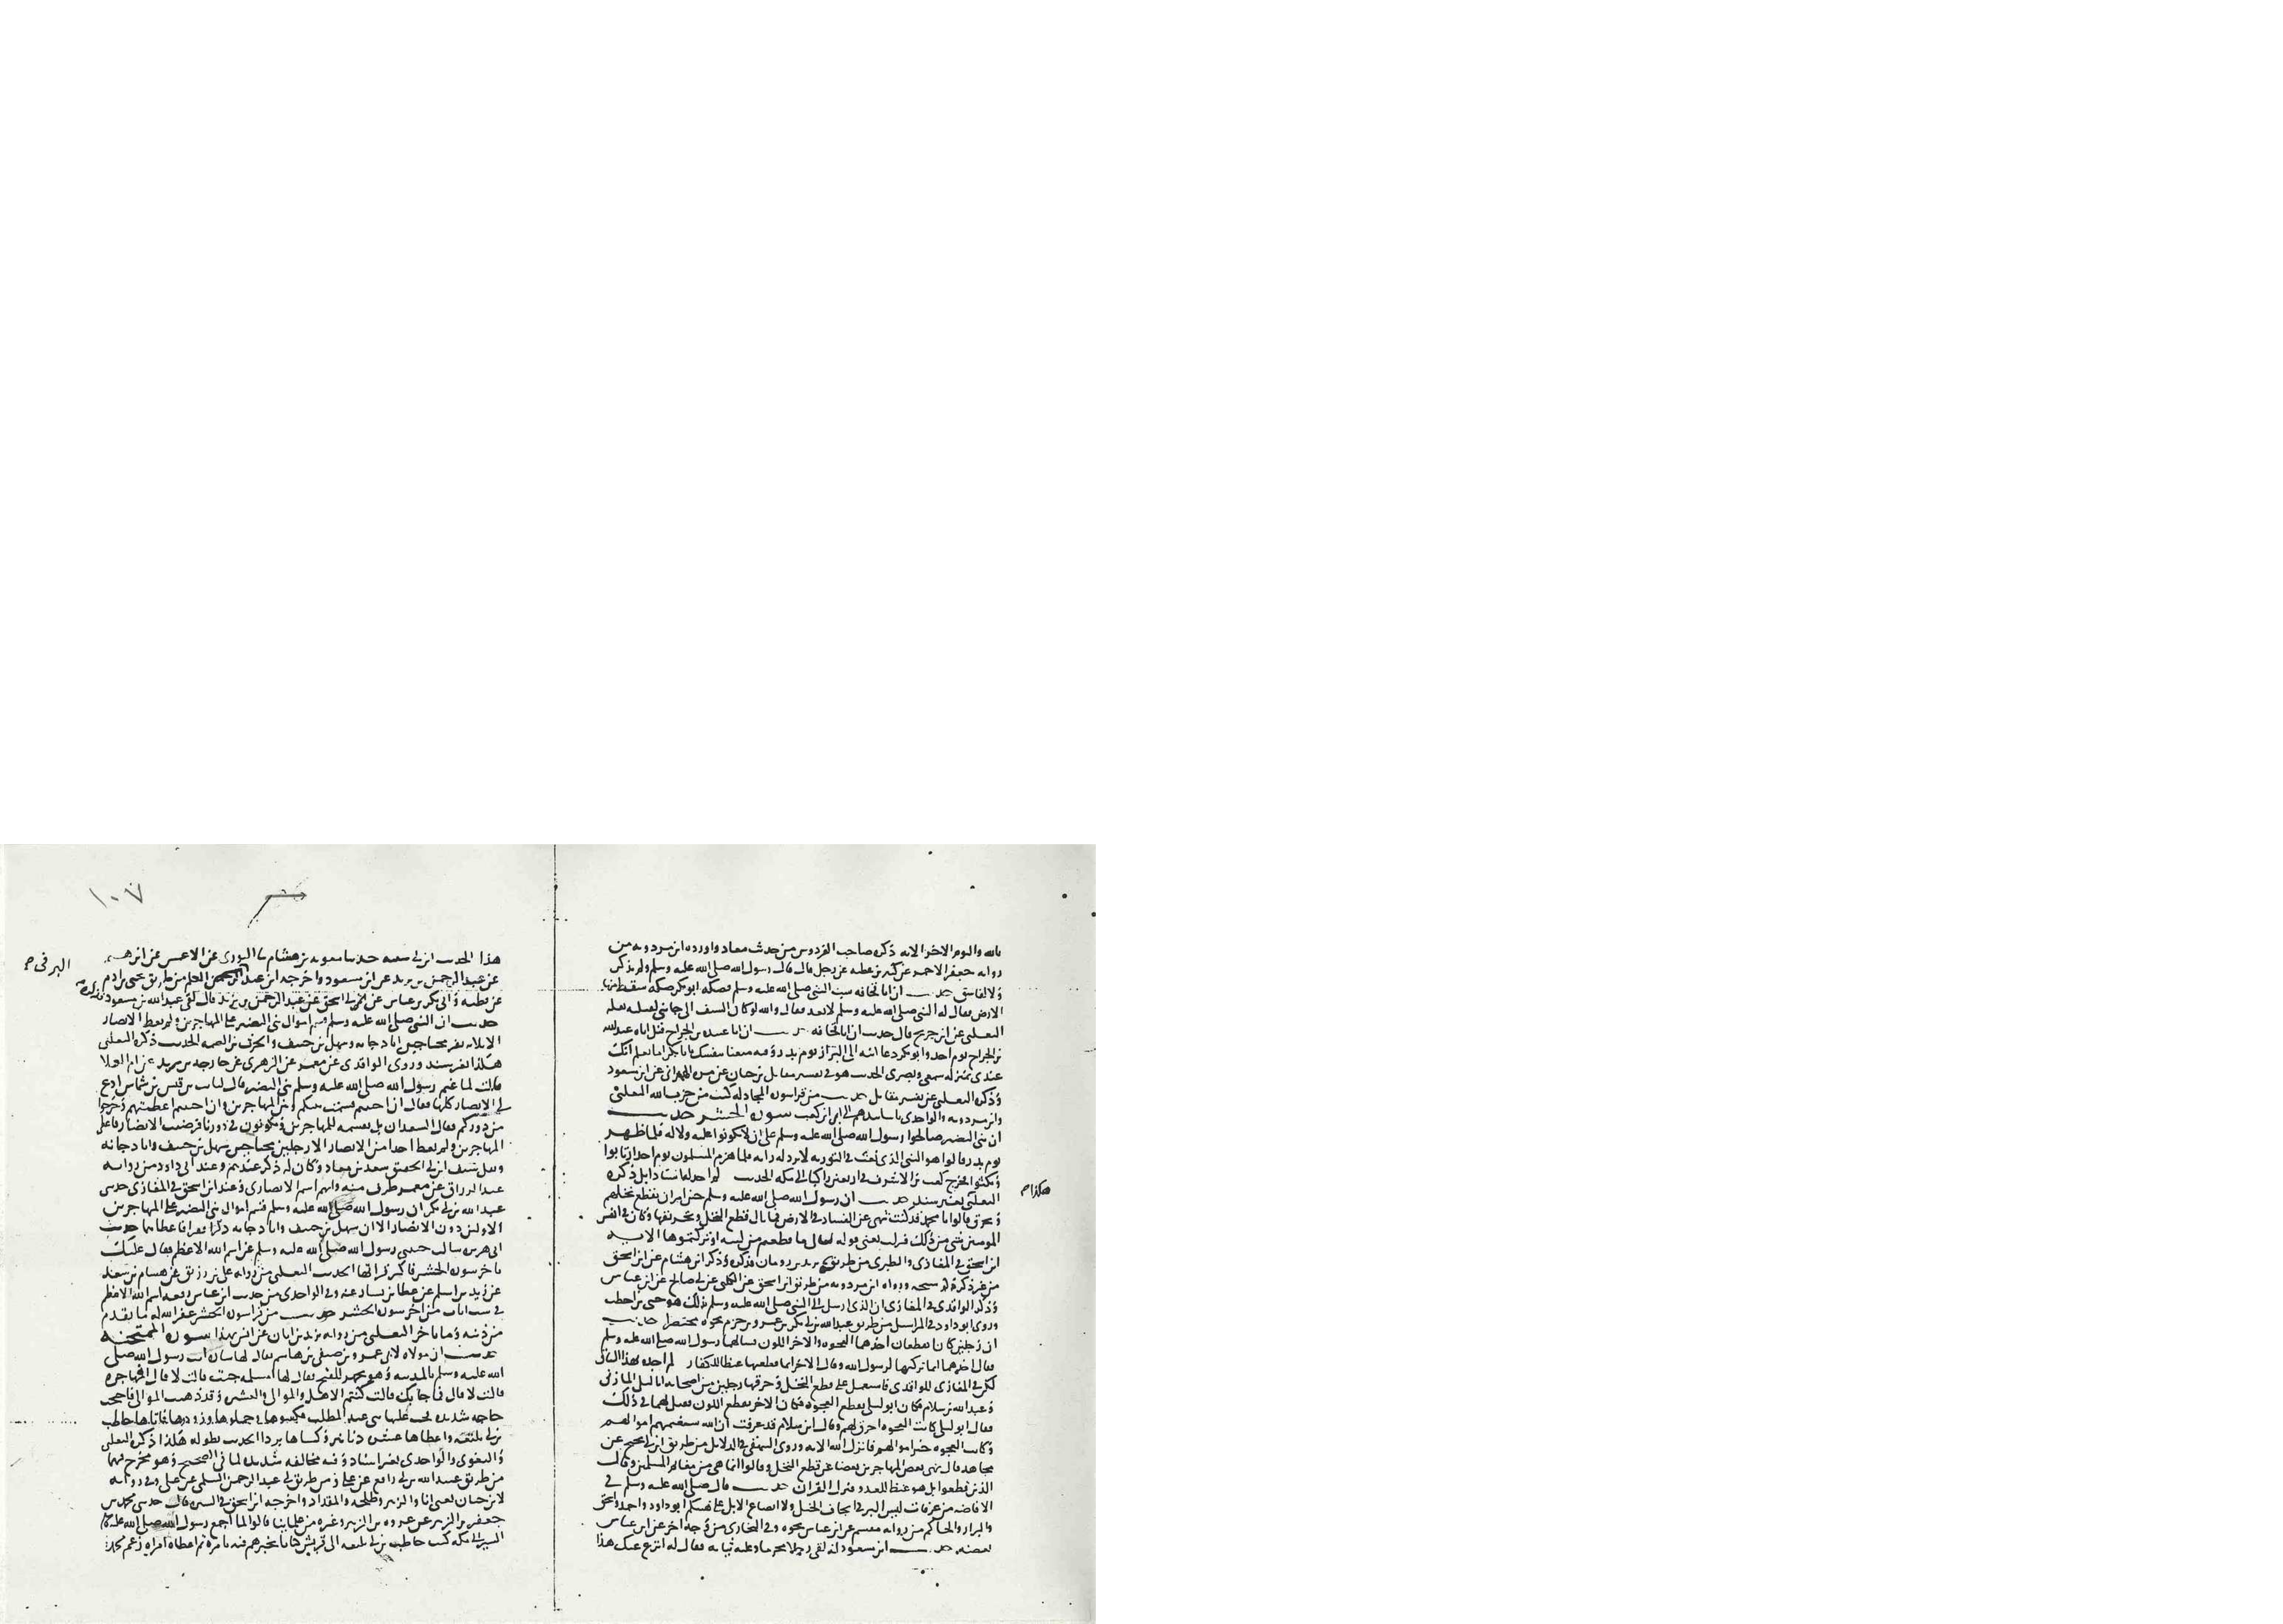 بالله واليوم الاخر الايه ذكره صاحب الفردوس من حديث معاذ واورده ابن مردويه من
روايه جعفر الاحمر عن كثير بن عطيه عن رجل قال قال رسول الله صلى الله عليه وسلم ولم يذكر
ولا لفاسق حديث ان ابا قحافه سب النبي صلى الله عليه وسلم فصكه ابو بكر صكه سقط منها
الارض فقال له النبي صلى الله عليه وسلم لا تعد فقال والله لو كان السيف الى جانبي لقتلته نقله
الثعلبي عن ابن جريج قال حدثت ان ابا قحافه حديث ان ابا عبيده بن الجراح قتل اباه عبد الله
بن الجراح يوم احد وابو بكر دعا ابنه الى البراز يوم بدر وقال متعنا بنفسك يا ابا بكر اما تعلم انك
عندي بمنزله سمعي وبصري الحديث هو في تفسير مقاتل بن حيان عن مره الهمداني عن ابن مسعود
وذكره الثعلبي عن تفسير مقاتل حديث من قرا سوره المجادله كتب من حزب الله الثعلبي
وابن مردويه والواحدي باسانيدهم الى ابي بن كعب سوره الحشر حديث
ان بني النضير صالحوا رسول الله صلى الله عليه وسلم على ان لا يكونوا عليه ولا له فلما ظهر
يوم بدر قالوا هو النبي الذي نعت في التوريه لا ترد له رايه فلما هزم المسلمون يوم احد ارتابوا
ونكثوا فخرج كعب بن الاشرف في اربعين راكبا الى مكه الحديث لم اجد له اسنادا بل ذكره
هكذا
الثعلبي بغير سند حديث ان رسول الله صلى الله عليه وسلم حين امر ان يقطع نخلهم
ويحرق قالوا يا محمد قد كنت تنهى عن الفساد في الارض فما بال قطع النخل وتحريقها وكان في انفس
المومنين شي من ذلك فنزلت يعني قوله تعالى ما قطعتم من لينه او تركتموها الايه
ابن اسحق في المغازي والطبري من طريق يزيد بن رومان فذكره وذكر ابن هشام عن ابن اسحق
من غير ذكره له ورواه ابن مردويه من طريق ابن اسحق عن الكلبي عن ابي صالح عن ابن عباس
وذكر الواقدي في المغازي ان الذي ارسل الى النبي صلى الله عليه وسلم بذلك هو حيي بن اخطب
وروى ابو داود في المراسيل من طريق عبد الله بن ابي بكر بن عمرو بن حزم نحوه مختصرا حديث
ان رجلين كانا يقطعان احدهما العجوه والاخر اللون فسالهما رسول الله صلى الله عليه وسلم
فقال احدهما انما تركتها لرسول الله وقال الاخر انما قطعتها غيظا للكفار لم اجده بهذا السياق
لكن في المغازي للواقدي فاستعمل على قطع النخل وحرقها رجلين من اصحابه ابا ليلى المازني
وعبد الله بن سلام فكان ابو ليلى يقطع العجوه وكان الاخر يقطع اللون فقيل لهما في ذلك
فقال ابو ليلى كانت العجوه احرق لهم وقال ابن سلام قد عرفت ان الله سيغنمهم اموالهم
وكانت العجوه خير اموالهم فانزل الله الايه وروى البيهقي في الدلايل من طريق ابن ابي نجيح عن
مجاهد قال نهى بعض المهاجرين بعضا عن قطع النخل وقالوا انما هي من مغانم المسلمين وقال
الذين قطعوا بل هو غيظ للعدو فنزل القران حديث قال صلى الله عليه وسلم في
الافاضه من عرفات ليس البر في ايجاف الخيل ولا ايضاع الابل على هينتكم ابو داود واحمد واسحق
والبزار والحاكم من روايه مقسم عن ابن عباس نحوه وفي البخاري من وجه اخر عن ابن عباس
بعضه حديث ابن مسعود انه لقي رجلا محرما وعليه ثيابه فقال له انزع عنك هذا
١٠٧
هذا الحديث ابن ابي شيبه حدثنا معويه بن هشام نا الثوري عن الاعمش عن ابرهيم
عن عبد الرحمن بن يزيد عن ابن مسعود واخرجه ابن عبد البر في العلم من طريق يحيى بن ادم
البر في
عن قطبه وابي بكر بن عياش عن ابي اسحق عن عبد الرحمن بن يزيد قال لقي عبد الله بن مسعود
حديث ان النبي صلى الله عليه وسلم قسم اموال بني النضير على المهاجرين ولم يعط الانصار
الا ثلاثه نفر محتاجين ابا دجانه وسهل بن حنيف والحرث بن الصمه الحديث ذكره الثعلبي
هكذا بغير سند وروى الواقدي عن معمر عن الزهري عن خارجه بن زيد عن ام العلا
قالت لما غنم رسول الله صلى الله عليه وسلم بني النضير قال لثابت بن قيس بن شماس ادع
لي الانصار كلها فقال ان احببتم قسمت بينكم وبين المهاجرين وان احببتم اعطيتهم وخرجوا
من دوركم فقال السعدان بل تقسمه للمهاجرين ويكونون في دورنا فرضيت الانصار فاعطى
المهاجرين ولم يعط احدا من الانصار الا رجلين محتاجين سهل بن حنيف وابا دجانه
ونفل سيف ابن ابي الحقيق سعد بن معاذ وكان له ذكر عندهم وعند ابي داود من روايه
عبد الرزاق عن معمر طرف منه وابهم اسم الانصاري وعند ابن اسحق في المغازي حدثني
عبد الله بن ابي بكر ان رسول الله صلى الله عليه وسلم قسم اموال بني النضير على المهاجرين
الاولين دون الانصار الا ان سهل بن حنيف وابا دجانه ذكرا فقرا فاعطاهما حديث
ابي هريره سالت حبيبي رسول الله صلى الله عليه وسلم عن اسم الله الاعظم فقال عليك
باخر سوره الحشر فاكثر قراتها الحديث الثعلبي من روايه علي بن رزيق عن هشام بن سعد
عن زيد بن اسلم عن عطا بن يسار عنه وفي الواحدي من حديث ابن عباس رفعه اسم الله الاعظم
في ست ايات من اخر سوره الحشر حديث من قرا سوره الحشر غفر الله له ما تقدم
من ذنبه وما تاخر الثعلبي من روايه يزيد بن ابان عن انس بهذا سوره الممتحنه
حديث ان مولاه لابي عمرو بن صيفي بن هاشم يقال لها ساره اتت رسول الله صلى
الله عليه وسلم بالمدينه وهو يتجهز للفتح فقال لها امسلمه جيت قالت لا قال افمهاجره
قالت لا قال فما جا بك قالت كنتم الاهل والموالي والعشيره وقد ذهبت الموالي فاحتجت
حاجه شديده فحث عليها بني عبد المطلب فكسوها وحملوها وزودوها فاتاها حاطب
بن ابي بلتعه واعطاها عشره دنانير وكساها بردا الحديث بطوله هكذا ذكره الثعلبي
والبغوي والواحدي بغير اسناد وفيه مخالفه شديده لما في الصحيح وهو مخرج فيهما
من طريق عبيد الله بن ابي رافع عن علي ومن طريق ابي عبد الرحمن السلمي عن علي وفي روايه
لابن حبان بعثني انا والزبير وطلحه والمقداد واخرجه ابن اسحق في السيره قال حدثني محمد بن
جعفر بن الزبير عن عروه بن الزبير وغيره من علماينا قالوا لما اجمع رسول الله صلى الله عليه وسلم
السير الى مكه كتب حاطب بن ابي بلتعه الى قريش كتابا يخبرهم فيه بامره ثم اعطاه امراه زعم محمد